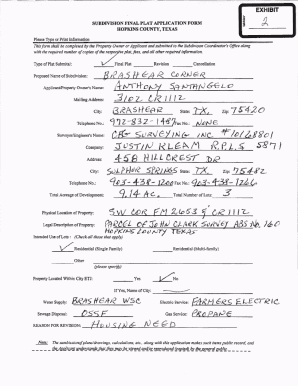 EXHIBIT
2
SUBDIVISION FINAL PLAT APPLICATION FORM
HOPKINS COUNTY, TEXAS
Please Type or Print Information
This form shall be completed by the Property Owner or Applicant and submitted to the Subdivision Coordinator's Office along
with the required number of copies of the respective plat, fees, and all other required information
Type of Plat Submittal: ✓ Final Plat Revision Cancellation
Proposed Name of Subdivision: BRASHEAR CORNER
Applicant/Property Owner's Name: ANTHONY SANTANGELO
Mailing Address: 3102 CR 1112
City: BRASHEAR State: TX. Zip: 75420
Telephone No.: 972-832-1487 Fax No.: NONE
Surveyor/Engineer's Name: CBG SURVEYING INC #10168801
Company: JUSTIN KLEAM R.P.L.S 5871
Address: 458 HILLCREST DR
City: SULPHUR SPRINGS State: TX Zip: 75482
Telephone No.: 903-438-1266 Fax No.: 903-438-1266
Total Acreage of Development: 9.14 AC. Total Number of Lots: 3
Physical Location of Property: S.W COR FM 2653 & CR 1112
Legal Description of Property: PARCEL OF JOHN CLARK SURVEY ABS NO. 160
HOPKINS COUNTY TEXAS
Intended Use of Lots: (Check all those that apply)
✓ Residential (Single Family) Residential (Multi-family)
Other
(please specify)
Property Located Within City ETJ: Yes ✓ No
If Yes, Name of City:
Water Supply: BRASHEAR WSC Electric Service: FARMERS ELECTRIC
Sewage Disposal: OSSF Gas Service: PROPANE
REASON FOR REVISION: HOUSING NEED
Note: The subdivision of plans/drawings, calculations, etc., along with this application make such items public record, and
the applicant understands that they may be viewed and/or reproduced (copied) by the general public.